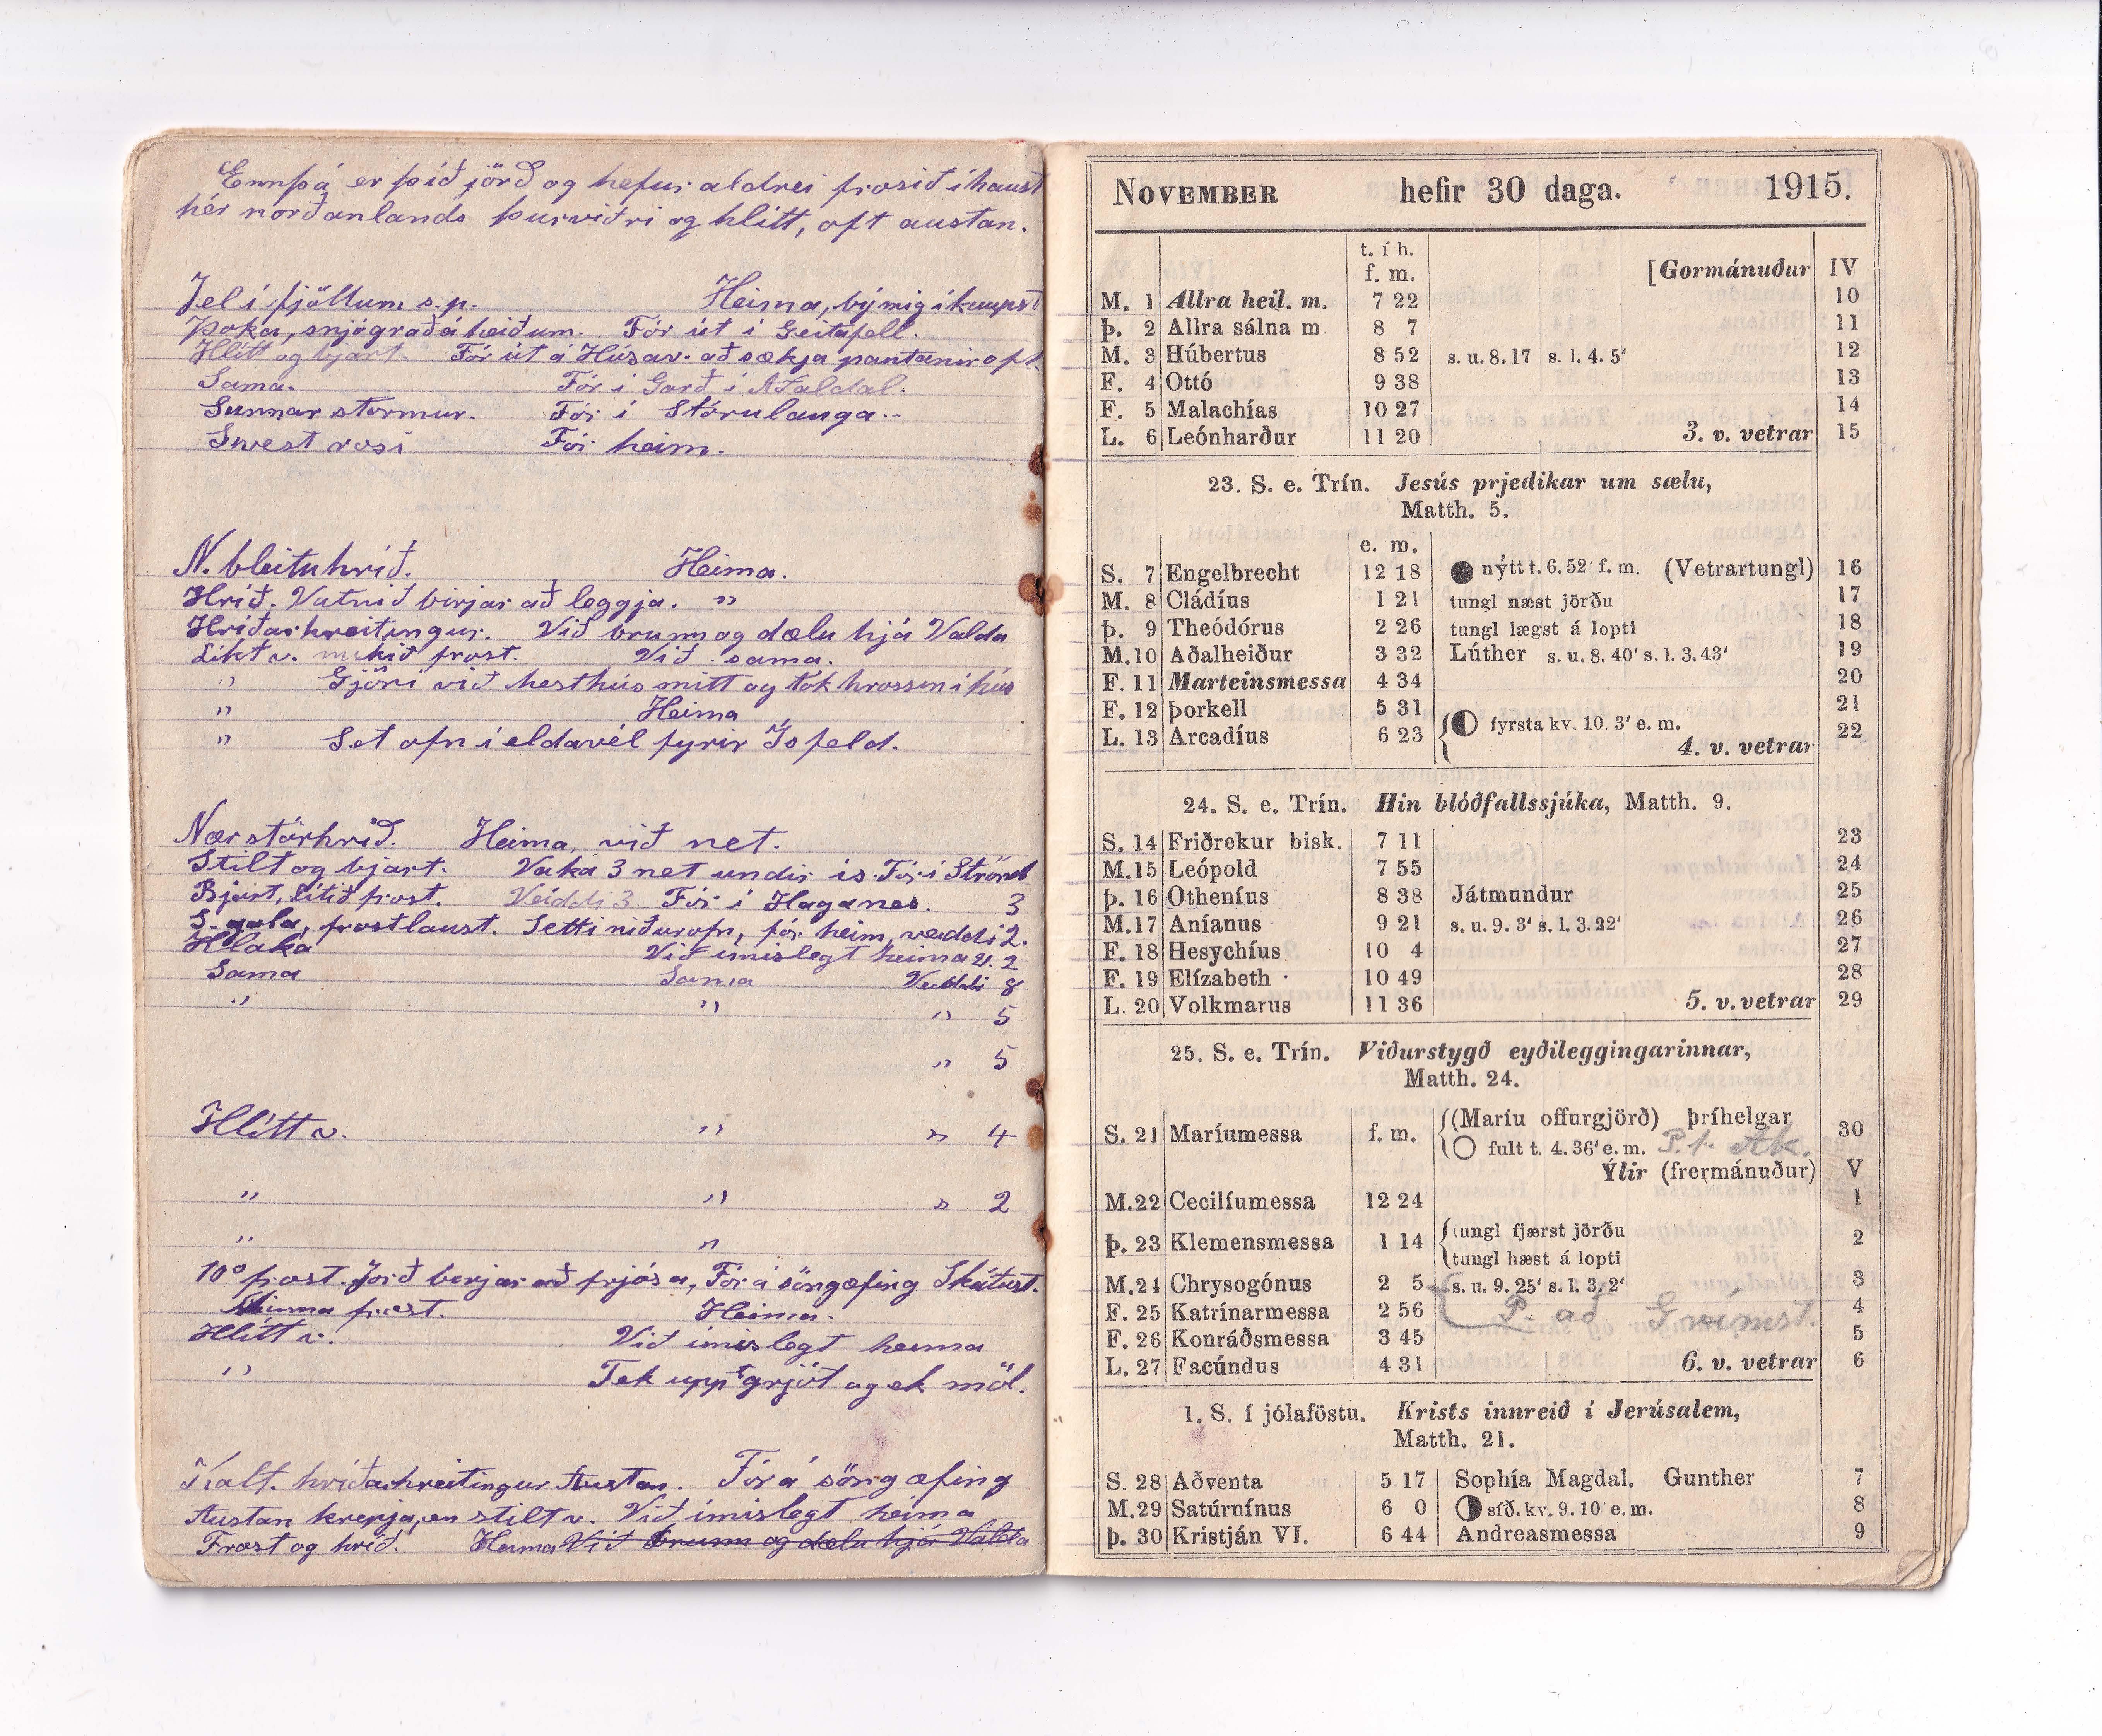 Ennþá er þíð jörð og hefur aldrei frosið í haust
hér norðanlands þurviðri og hlítt, oft austan.
Jel í fjöllum s.p. Heima, bý mig í kaupst
Þoka, snjógrað á heiðum. Fór út í Geitafell.
Hlítt og bjart. Fór út á Húsav. að sækja pantanir ofl.
Sama. Fór í Garð í Aðaldal.
Sunnar stormur. Fór í Stórulauga.-
Svest rosi Fór heim.
N. bleituhríð. Heima.
Hríð. Vatnið birjar að leggja. "
Hríðarhreitingur. Við brunn og dælu hjá Valda
Líkt v. mikið frost. Við sama.
" Gjöri við hesthús mitt og tók hrossin í hús
" Heima
" Set ofn í eldavél fyrir Ísfeld.
Nær stórhríð. Heima, við net.
Stilt og bjart. Vaka 3 net undir ís. Fór í Strönd
Bjart, lítið frost. Veiddi 3 Fór í Haganes. 3
S. gola, frostlaust. Setti niður ofn, fór heim, veiddi 2.
Hláka Við imislegt heima v. 2
Sama Sama Veiddi 8
" " " 5
" 5
Hlítt v. " " 4
" " " 2
" "
10° frost. Jörð berjar að frjósa, Fór á söngæfing Skútust.
Minna frost. Heima.
Hlítt v. Við imislegt heima
" Tek upp grjót og ek möl.
Kalt. hríðarhreitingur Austan. Fór á söngæfing
Austan krepja, en stilt v. Við ímislegt heima
Frost og hríð. Heima Við brunn og dælu hjá Valda
NOVEMBER hefir 30 daga. 1915.
t. í h.
f. m. [Gormánuður IV
M. 1 Allra heil. m. 7 22 10
Þ. 2 Allra sálna m 8 7 11
M. 3 Húbertus 8 52 s. u. 8. 17 s. l. 4. 5' 12
F. 4 Ottó 9 38 13
F. 5 Malachías 10 27 14
L. 6 Leónharður 11 20 3. v. vetrar 15
23. S. e. Trín. Jesús prjedikar um sælu,
Matth. 5.
e. m.
S. 7 Engelbrecht 12 18 nýtt t. 6.52' f. m. (Vetrartungl) 16
M. 8 Cládíus 1 21 tungl næst jörðu 17
Þ. 9 Theódórus 2 26 tungl lægst á lopti 18
M. 10 Aðalheiður 3 32 Lúther s. u. 8. 40' s. l. 3. 43' 19
F. 11 Marteinsmessa 4 34 20
F. 12 Þorkell 5 31 21
L. 13 Arcadíus 6 23 fyrsta kv. 10. 3' e. m. 22
4. v. vetrar
24. S. e. Trín. Hin blóðfallssjúka, Matth. 9.
S. 14 Friðrekur bisk. 7 11 23
M. 15 Leópold 7 55 24
Þ. 16 Otheníus 8 38 Játmundur 25
M. 17 Aníanus 9 21 s. u. 9. 3' s. l. 3. 22' 26
F. 18 Hesychíus 10 4 27
F. 19 Elízabeth 10 49 28
L. 20 Volkmarus 11 36 5. v. vetrar 29
25. S. e. Trín. Viðurstygð eyðileggingarinnar,
Matth. 24.
(Maríu offurgjörð) þríhelgar
S. 21 Maríumessa f. m. fult t. 4. 36' e. m. P. f. Ak. 30
Ýlir (frermánuður) V
M. 22 Cecilíumessa 12 24 1
tungl fjærst jörðu
Þ. 23 Klemensmessa 1 14 2
tungl hæst á lopti
M. 24 Chrysogónus 2 5 s. u. 9. 25' s. l. 3. 2' 3
F. 25 Katrínarmessa 2 56 P. að Grímst. 4
F. 26 Konráðsmessa 3 45 5
L. 27 Facúndus 4 31 6. v. vetrar 6
1. S. í jólaföstu. Krists innreið í Jerúsalem,
Matth. 21.
S. 28 Aðventa 5 17 Sophía Magdal. Gunther 7
M. 29 Satúrnínus 6 0 síð. kv. 9. 10' e. m. 8
Þ. 30 Kristján VI. 6 44 Andreasmessa 9